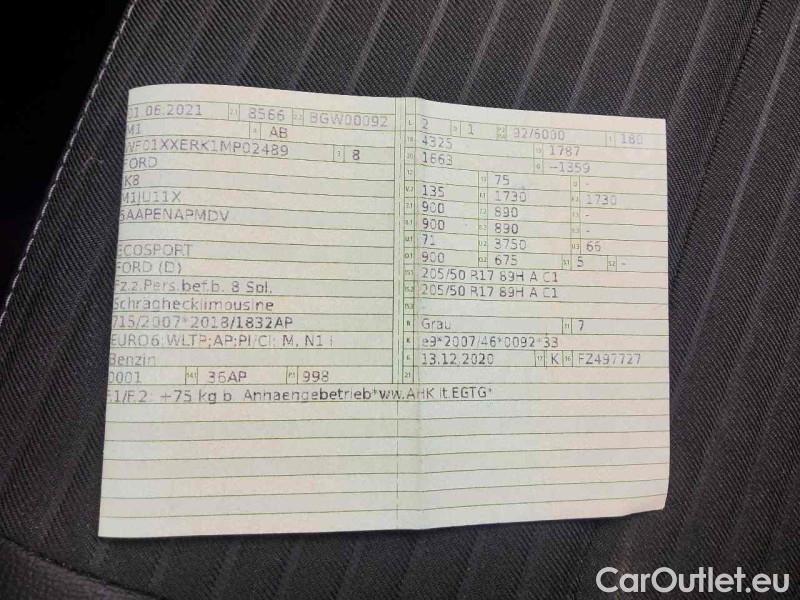 01 06.2021 2.1 8566 2.2 BGW00092
M1 4 AB
WF01XXERK1MP02489 3 8
FORD
JK8
M1JU11X
5AAPENAPMDV
ECOSPORT
FORD (D)
Fz.z.Pers.bef.b. 8 Spl.
Schraghecklimousine
715/2007*2018/1832AP
EURO6;WLTP;AP;PI/CI; M, N1 I
Benzin
0001 14.1 36AP P.1 998
F.1/F.2: +75 kg b. Anhaengebetrieb*ww.AHK lt.EGTG*
L 2 9 1 92/6000 T 180
18 4325 19 1787
20 1663 G -1359
12 - 13 75 Q -
V.7 135 F.1 1730 F.2 1730
7.1 900 7.2 890 7.3 -
8.1 900 8.2 890 8.3 -
U.1 71 U.2 3750 U.3 66
O.1 900 O.2 675 S.1 5 S.2 -
15.1 205/50 R17 89H A C1
15.2 205/50 R17 89H A C1
15.3 -
R Grau 11 7
K e9*2007/46*0092*33
6 13.12.2020 17 K 16 FZ497727
21
CarOutlet.eu